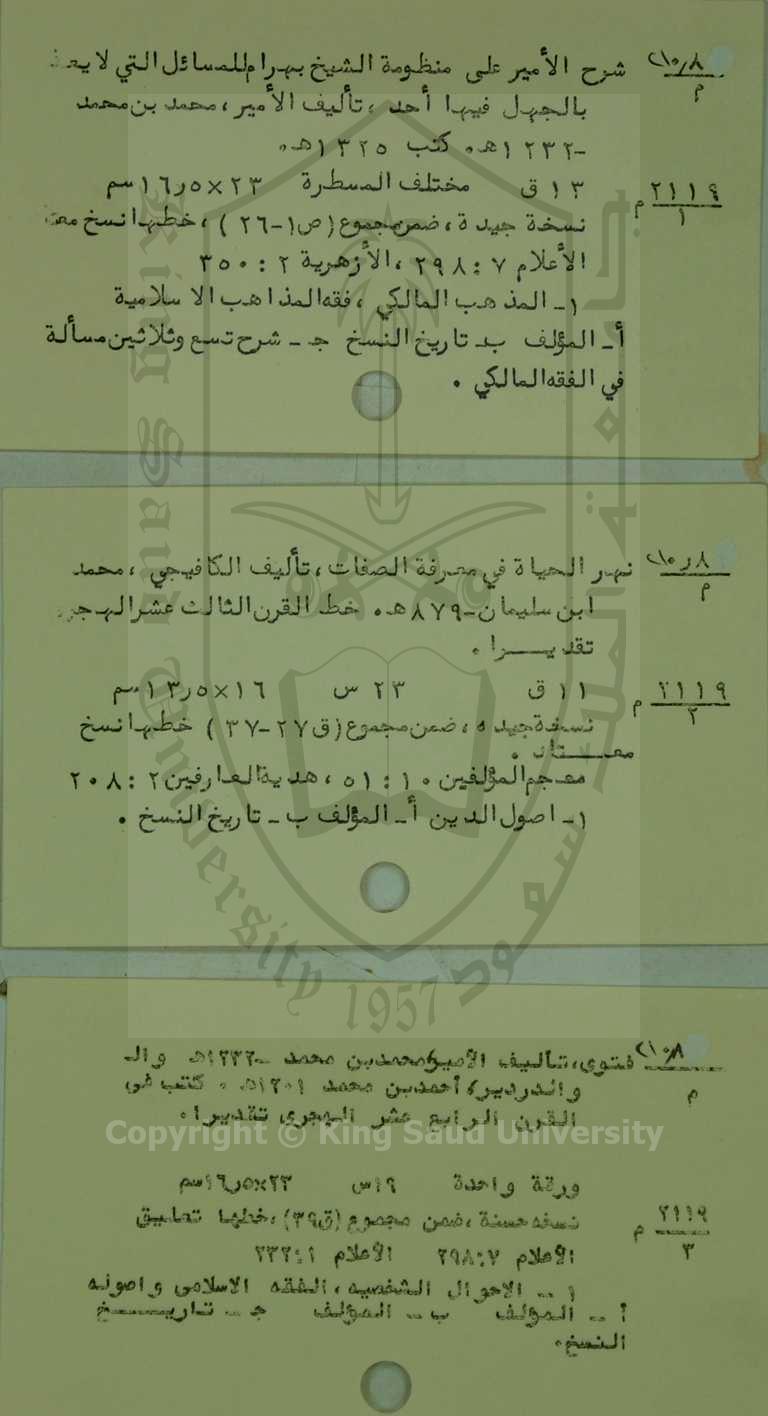 شرح الأمير على منظومة الشيخ بهرام للمسائل التي لا
م
بالجهل فيها أحد ، تأليف الأمير ، محمد بن محمد
-١٢٣٢هـ. كتب ١٣٢٥هـ.
١٣ ق مختلف المسطرة ٢٣×١٦٫٥سم
٢١١٩ م
١
نسخة جيدة ، ضمن مجموع (ص١-٢٦) ، خطها نسخ
الأعلام ٧ : ٢٩٨ ، الأزهرية ٢ : ٣٥٠
١- المذهب المالكي ، فقه المذاهب الاسلامية
أ- المؤلف ب- تاريخ النسخ ج- شرح تسع وثلاثين مسألة
في الفقه المالكي .
نهر الحياة في معرفة الصفات ، تأليف الكافيجي ، محمد
م
ابن سليمان -٨٧٩هـ. خط القرن الثالث عشر
تقديـــرا .
١١ ق ٢٣ س ١٦×١٣٫٥سم
٢١١٩ م
٢
نسخة جيده ، ضمن مجموع (ق٢٧-٣٧) خطها نسخ
معـــتاد .
معجم المؤلفين ١٠ : ٥١ ، هدية العارفين ٢ : ٢٠٨
١- اصول الدين أ- المؤلف ب- تاريخ النسخ .
فتوى، تأليف الأمير، محمد بن محمد -١٢٣٢هـ والـ
م
والدردير، أحمد بن محمد ١٢٠١هـ. كتب في
القرن الرابع عشر الهجرى تقديرا.
Copyright © King Saud University
ورقة واحدة ١٩س ٢٣×١٦٫٥سم
٢١١٩ م
٣
نسخه حسنة ، ضمن مجموع (ق٣٩) ، خطها تعليق
الأعلام ٢٩٨:٧ الأعلام ٢٣٢:١
١ - الاحوال الشخصيه ، الفقه الاسلامى واصوله
أ - المؤلف ب - المؤلف ج - تاريـــخ
النسخ.
King Saud University
1957
جامعة الملك سعود